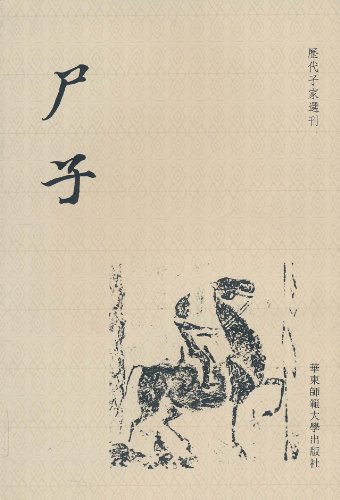 歷代子家選刊
尸子
華東師範大學出版社